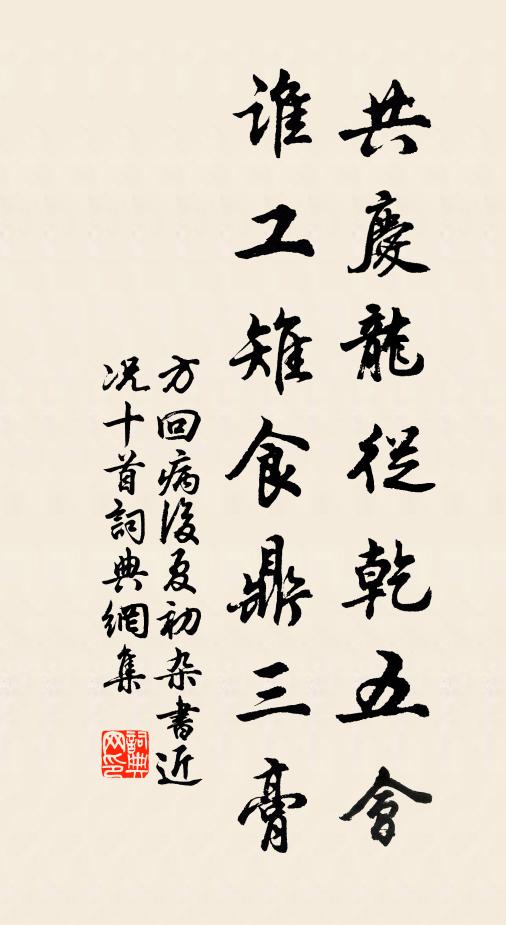 共慶龍從乾五會
誰工雉食鼎三膏
方回病後夏初杂書近
况十首詞典網集
詞典
网印